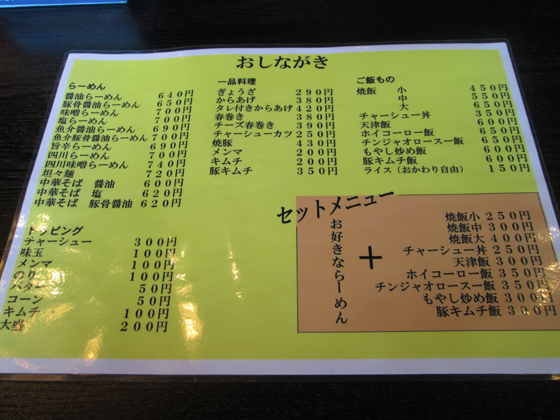 おしながき
らーめん
醤油らーめん 640円
豚骨醤油らーめん 650円
味噌らーめん 700円
塩らーめん 700円
魚介醤油らーめん 690円
魚介豚骨醤油らーめん 700円
旨辛らーめん 690円
四川らーめん 700円
四川味噌らーめん 740円
坦々麺 720円
中華そば 醤油 600円
中華そば 塩 620円
中華そば 豚骨醤油 620円
トッピング
チャーシュー 300円
味玉 100円
メンマ 100円
のり 100円
バター 50円
コーン 50円
キムチ 100円
大盛 200円
一品料理
ぎょうざ 290円
からあげ 380円
タレ付きからあげ 420円
春巻き 380円
チーズ春巻き 390円
チャーシューカツ 250円
焼豚 430円
メンマ 200円
キムチ 200円
豚キムチ 350円
ご飯もの
焼飯 小 450円
中 550円
大 650円
チャーシュー丼 350円
天津飯
ホイコーロー飯 650円
チンジャオロースー飯 650円
もやし炒め飯 600円
豚キムチ飯 600円
ライス（おかわり自由） 150円
セットメニュー
お好きならーめん
+
焼飯小 250円
焼飯中 300円
焼飯大 400円
チャーシュー丼 250円
天津飯 300円
ホイコーロー飯 350円
チンジャオロースー飯 350円
もやし炒め飯 300円
豚キムチ飯 300円